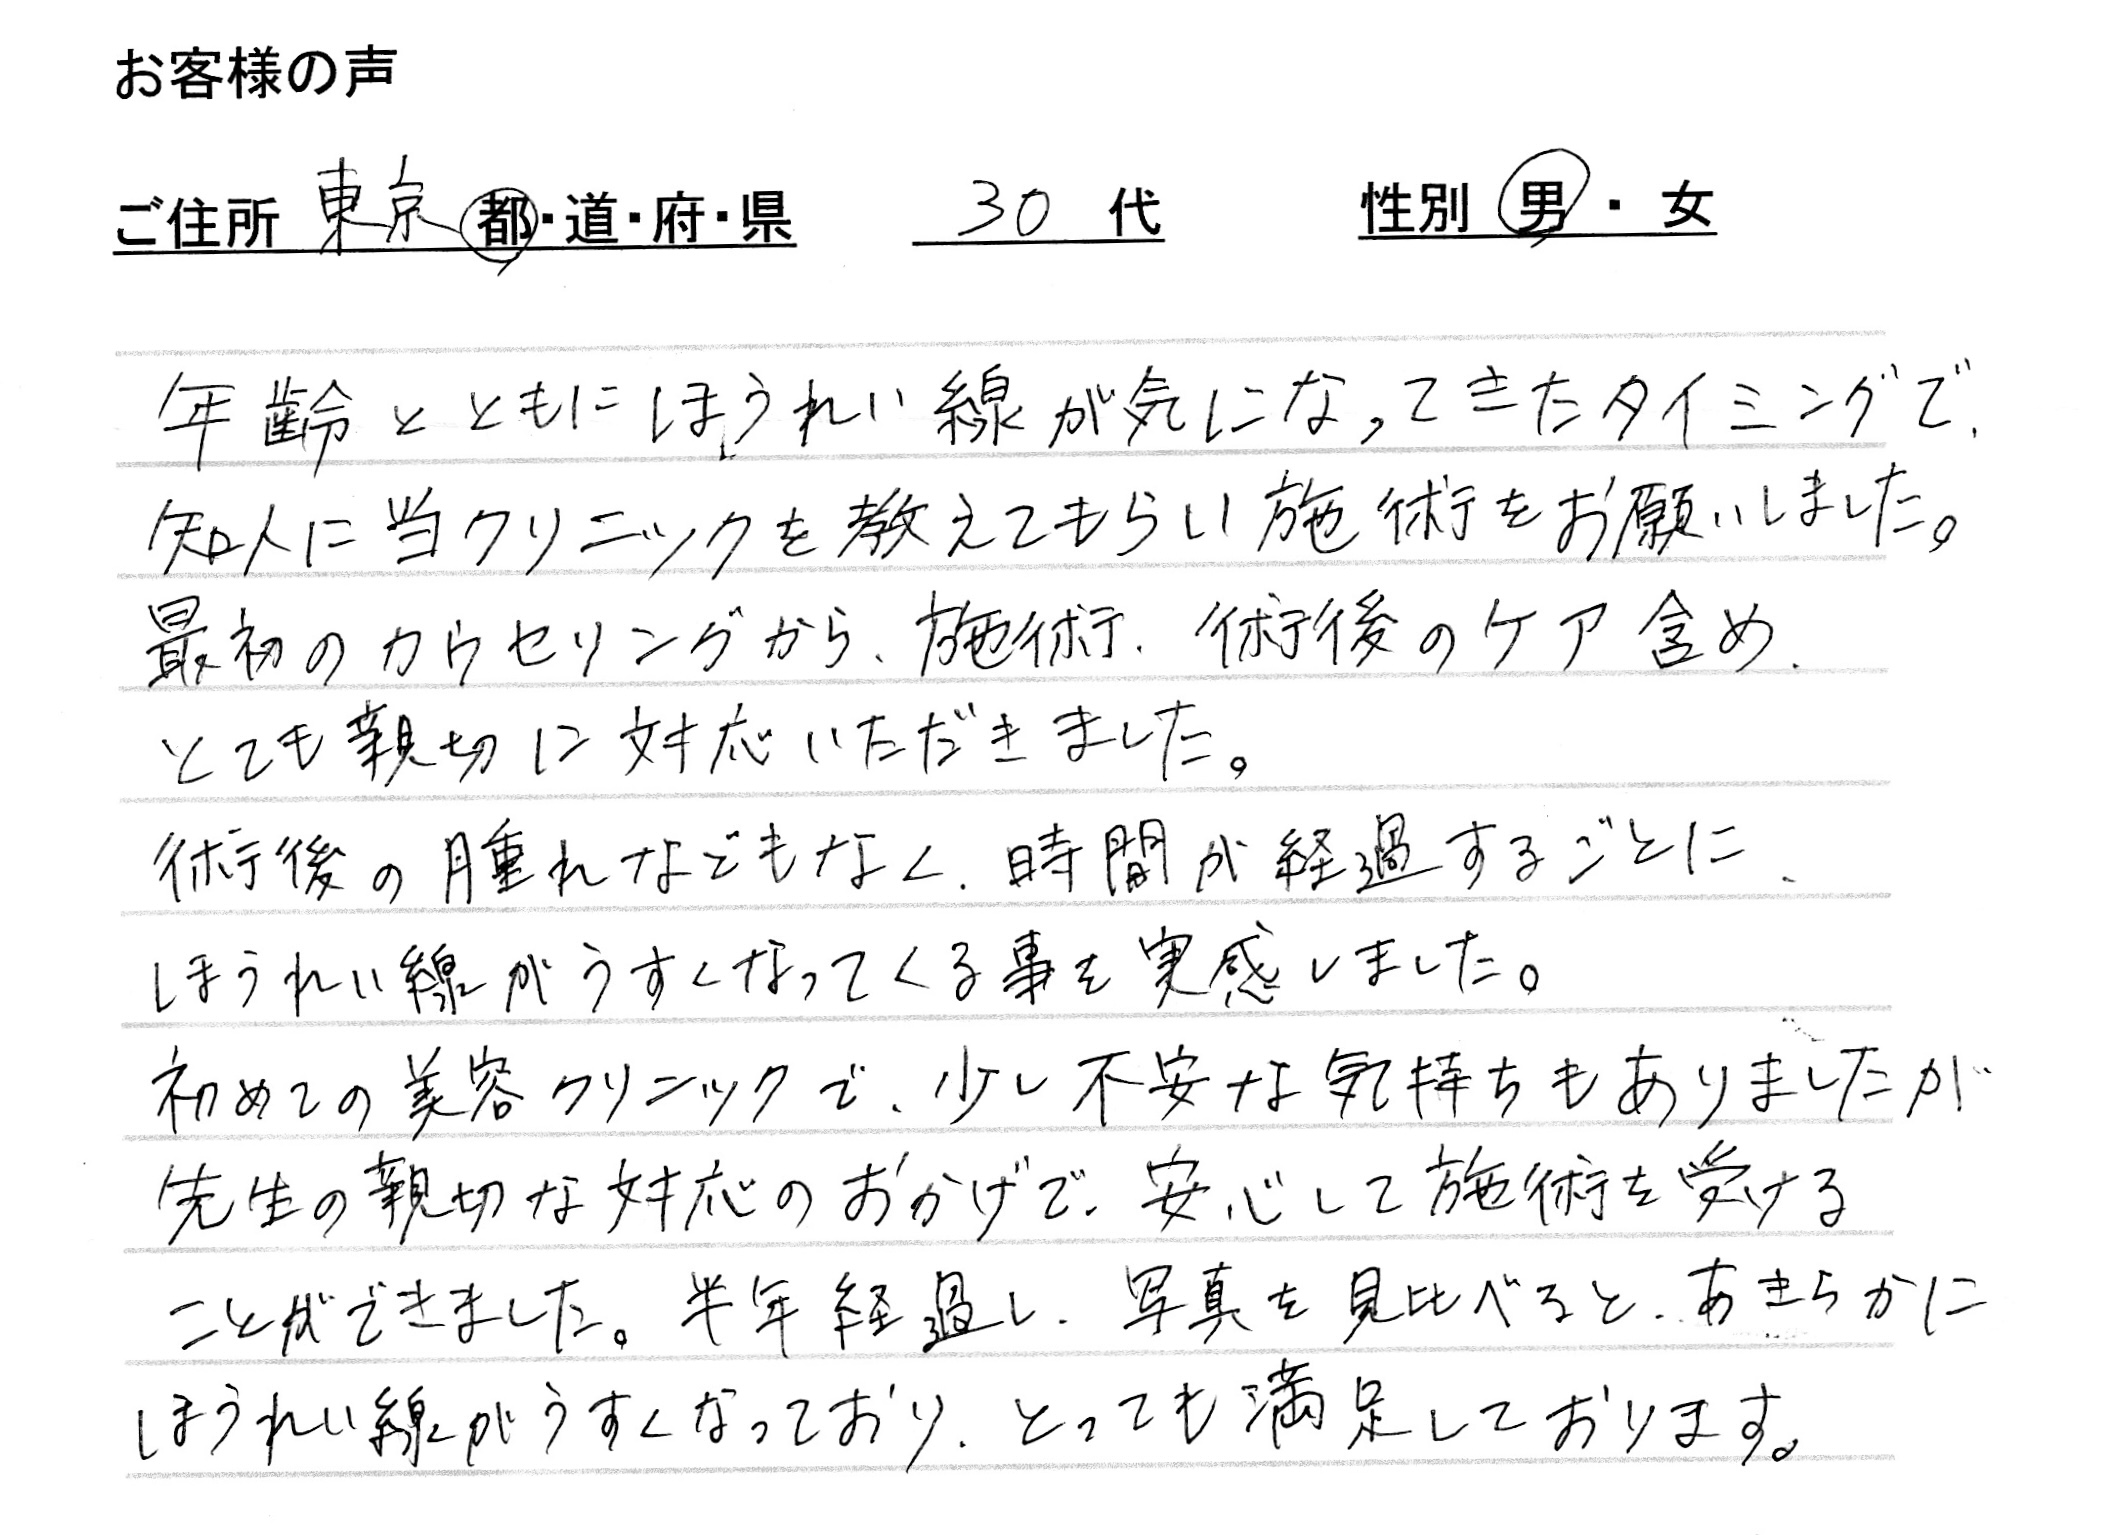 お客様の声
ご住所 東京 都・道・府・県 30 代 性別 男・女
年齢とともにほうれい線が気になってきたタイミングで、
知人に当クリニックを教えてもらい施術をお願いしました。
最初のカウセリングから、施術、術後のケア含め、
とても親切に対応いただきました。
術後の腫れなどもなく、時間が経過するごとに、
ほうれい線がうすくなってくる事を実感しました。
初めての美容クリニックで、少し不安な気持ちもありましたが
先生の親切な対応のおかげで、安心して施術を受ける
ことができました。半年経過し、写真を見比べると、あきらかに
ほうれい線がうすくなっており、とっても満足しております。